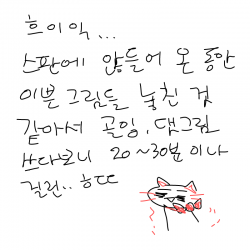 흐이익...
스판에 않들어 온 동안
이쁜 그림들 놓친 것
같아서 골잉, 댐그림
쓰다보니 20~30분이나
걸린.. ㅎㄸ